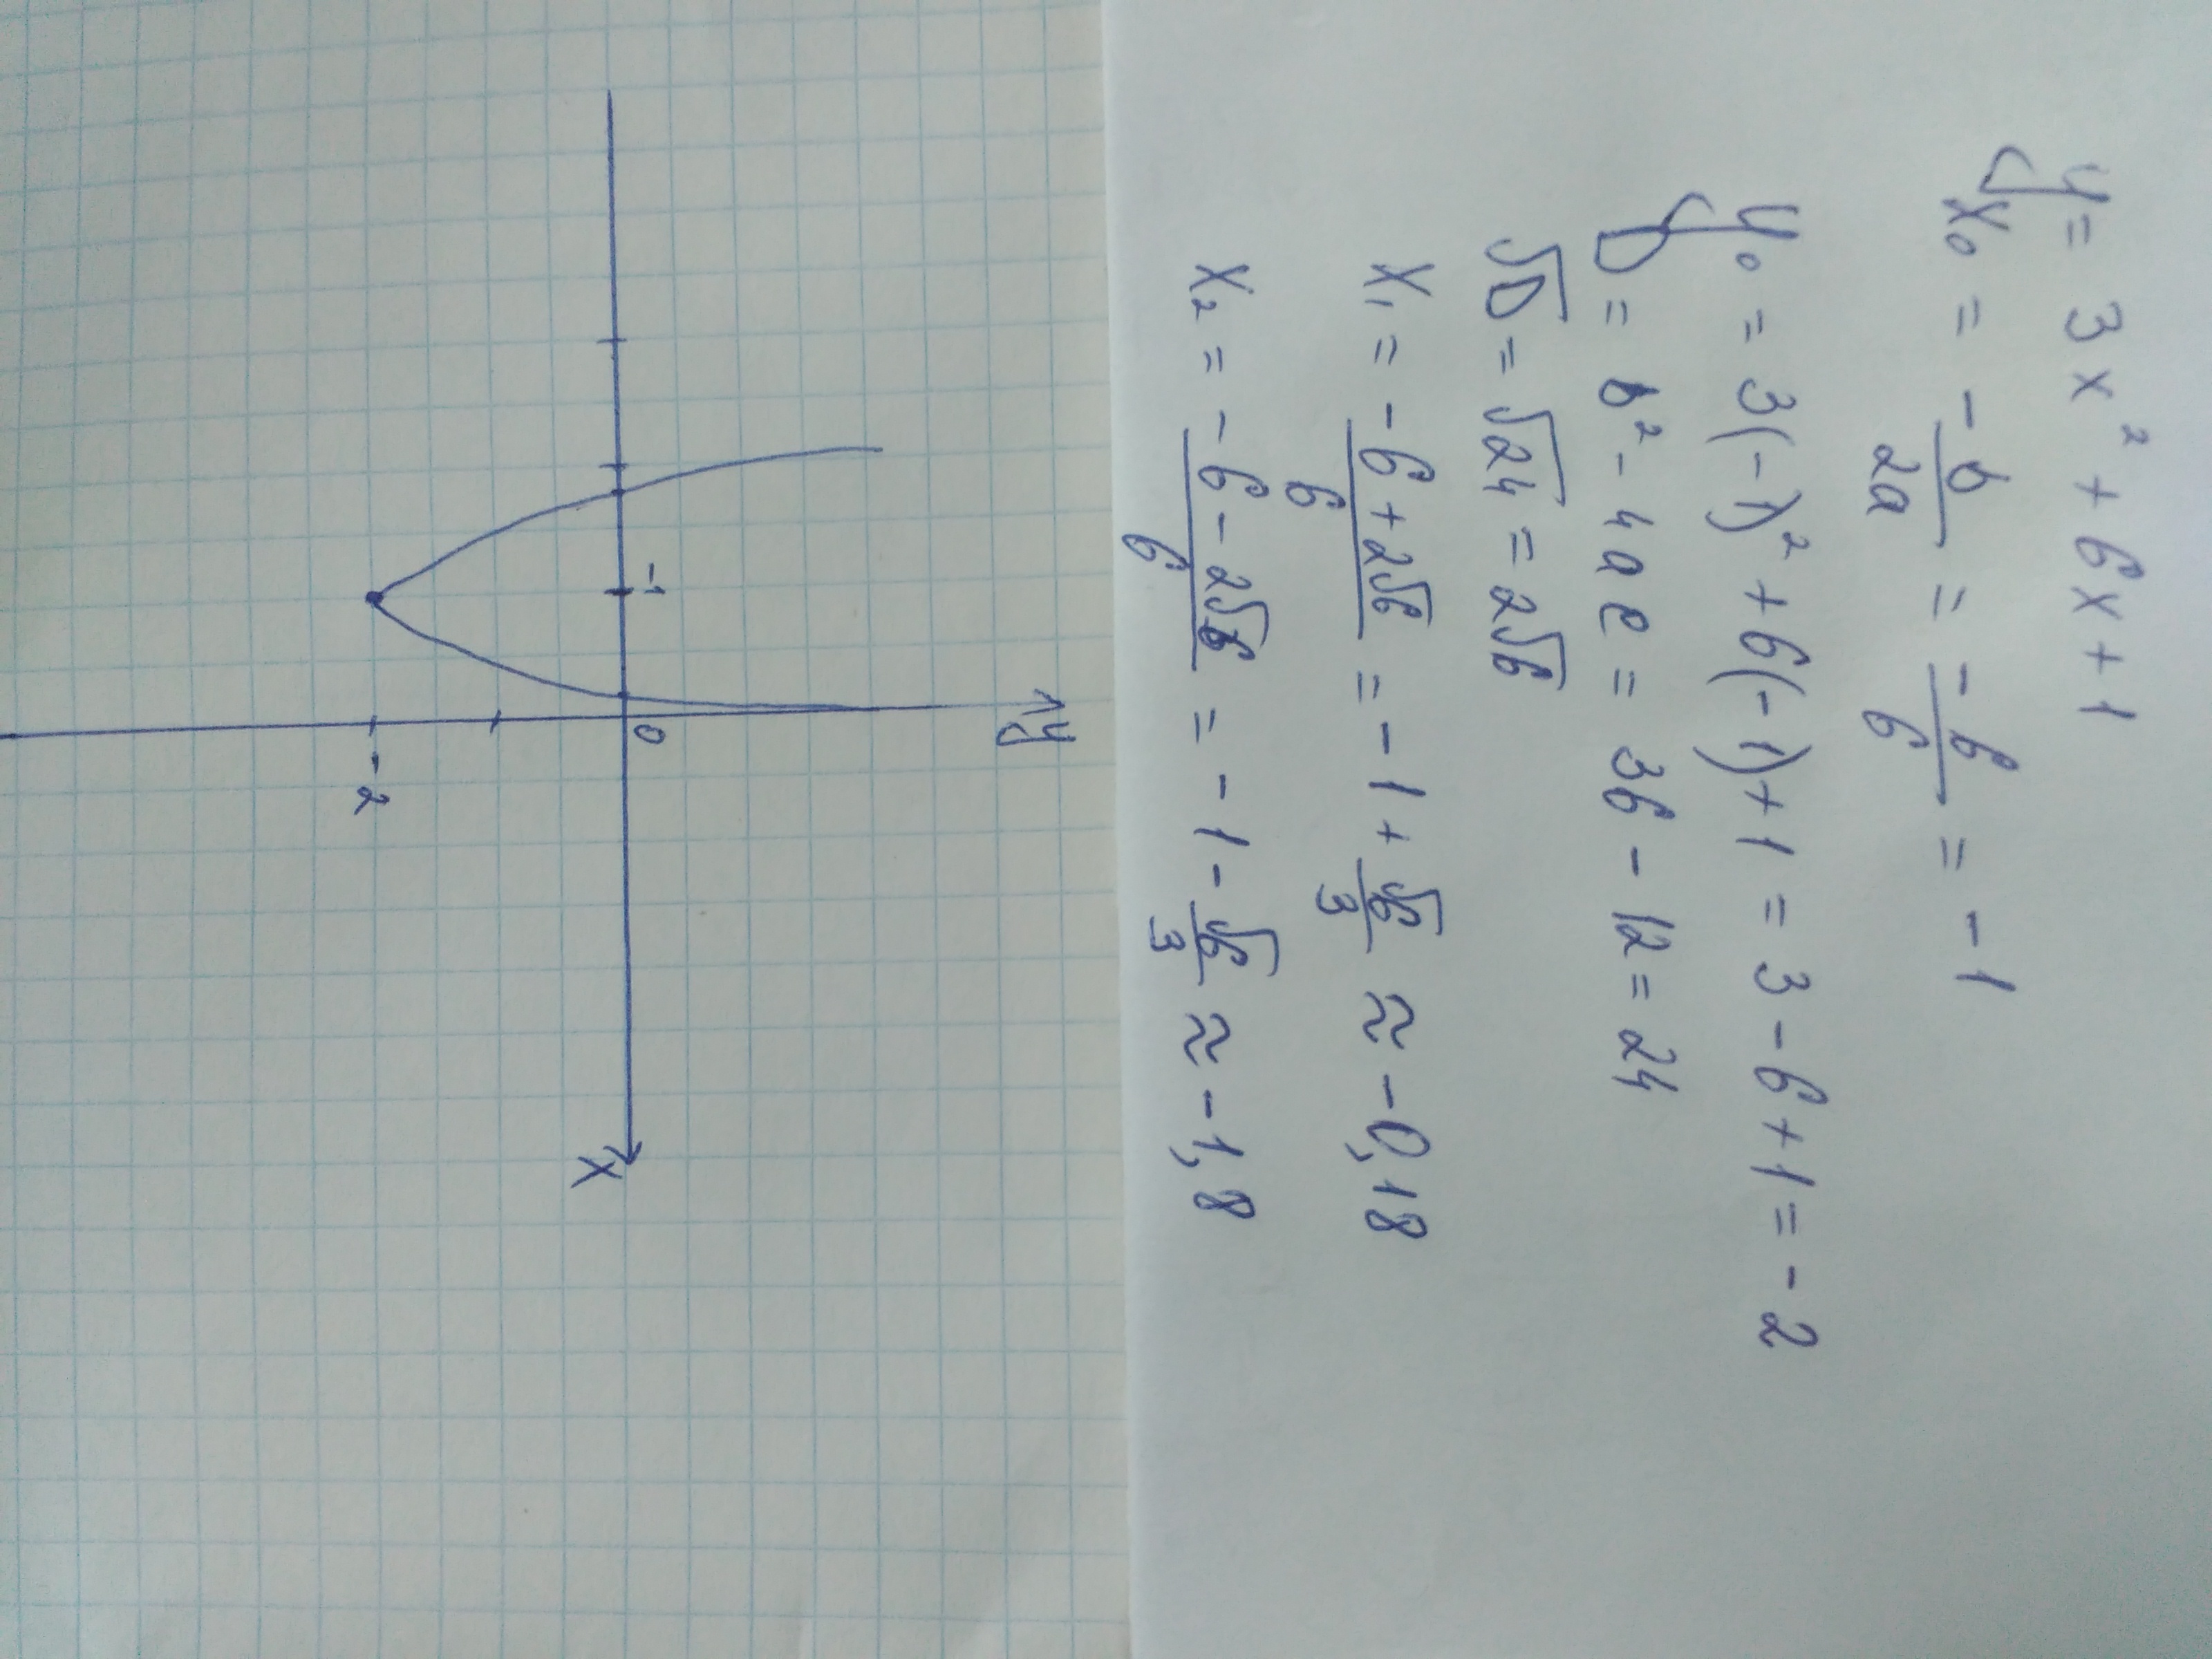 y = 3x² + 6x + 1
x₀ = -b/2a = -6/6 = -1
y₀ = 3(-1)² + 6(-1) + 1 = 3 - 6 + 1 = -2
D = b² - 4ac = 36 - 12 = 24
√D = √24 = 2√6
x₁ = -6 + 2√6/6 = -1 + √6/3 ≈ -0,18
x₂ = -6 - 2√6/6 = -1 - √6/3 ≈ -1,8
y
-1
0
x
-2